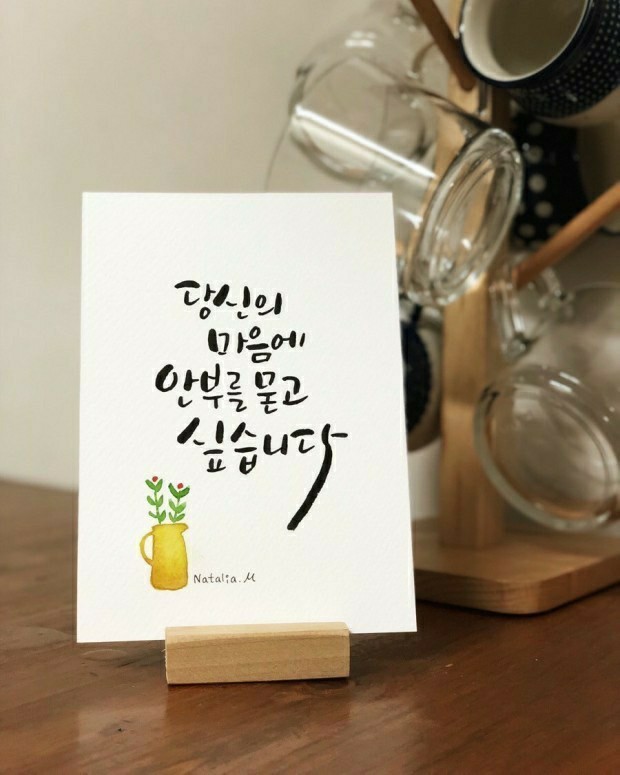 당신의
마음에
안부를 묻고
싶습니다
Natalia.M